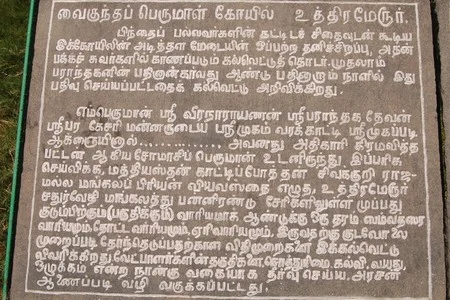 வைகுந்தப் பெருமாள் கோயில் உத்திரமேரூர்.
பிந்தைப் பல்லவர்களின் கட்டிடச் சிதைவுடன் கூடிய
இக்கோயிலின் அடித்தள மேடையின் ஒப்பற்ற தனிச்சிறப்பு, அதன்
பக்கச் சுவர்களில் காணப்படும் கல்வெட்டுத் தொடர். முதலாம்
பராந்தகனின் பதினான்காவது ஆண்டு பதினாறாம் நாளில் இது
பதிவு செய்யப்பட்டதைக் கல்வெட்டு அறிவிக்கிறது.
எம்பெருமான் ஸ்ரீ வீரநாராயணன் ஸ்ரீபராந்தக தேவன்
ஸ்ரீபர கேசரி மன்னருடைய ஸ்ரீமுகம் வரக்காட்டி ஸ்ரீமுகப்படி
ஆக்ஞையினால்.................. அவனது அதிகாரி கிரமவித்த
பட்டன், ஆகிய சோமாசிப் பெருமான் உடனிருந்து, இப்பரிசு
செய்விக்க, மத்தியஸ்தன் காட்டிப்போத்தன் சிவக்குறி ராஜ-
மல்ல மங்கலப் பிரியன் வியவஸ்தை எழுத, உத்திரமேரூர்
சதுர்வேதி மங்கலத்து பன்னிரண்டு சேரிகளிலுள்ள முப்பது
குடும்பிற்கும்(பகுதிக்கும்) வாரியமாக ஆண்டுக்கு ஒரு தரம் ஸம்வத்ஸர
வாரியமும், தோட்ட வாரியமும், ஏரிவாரியமும், இருவதற்கு குடவோலை
முறைப்படி தேர்ந்தெடுப்பதற்கான விதிமுறைகளை இக்கல்வெட்டு
விவரிக்கிறது. வேட்பாளர்களின் தகுதிகளை, சொத்துரிமை, கல்வி, வயது,
ஒழுக்கம் என்ற நான்கு வகையாக தீர்வு செய்ய, அரசன்
ஆணைப்படி வழி வகுக்கப்பட்டது.